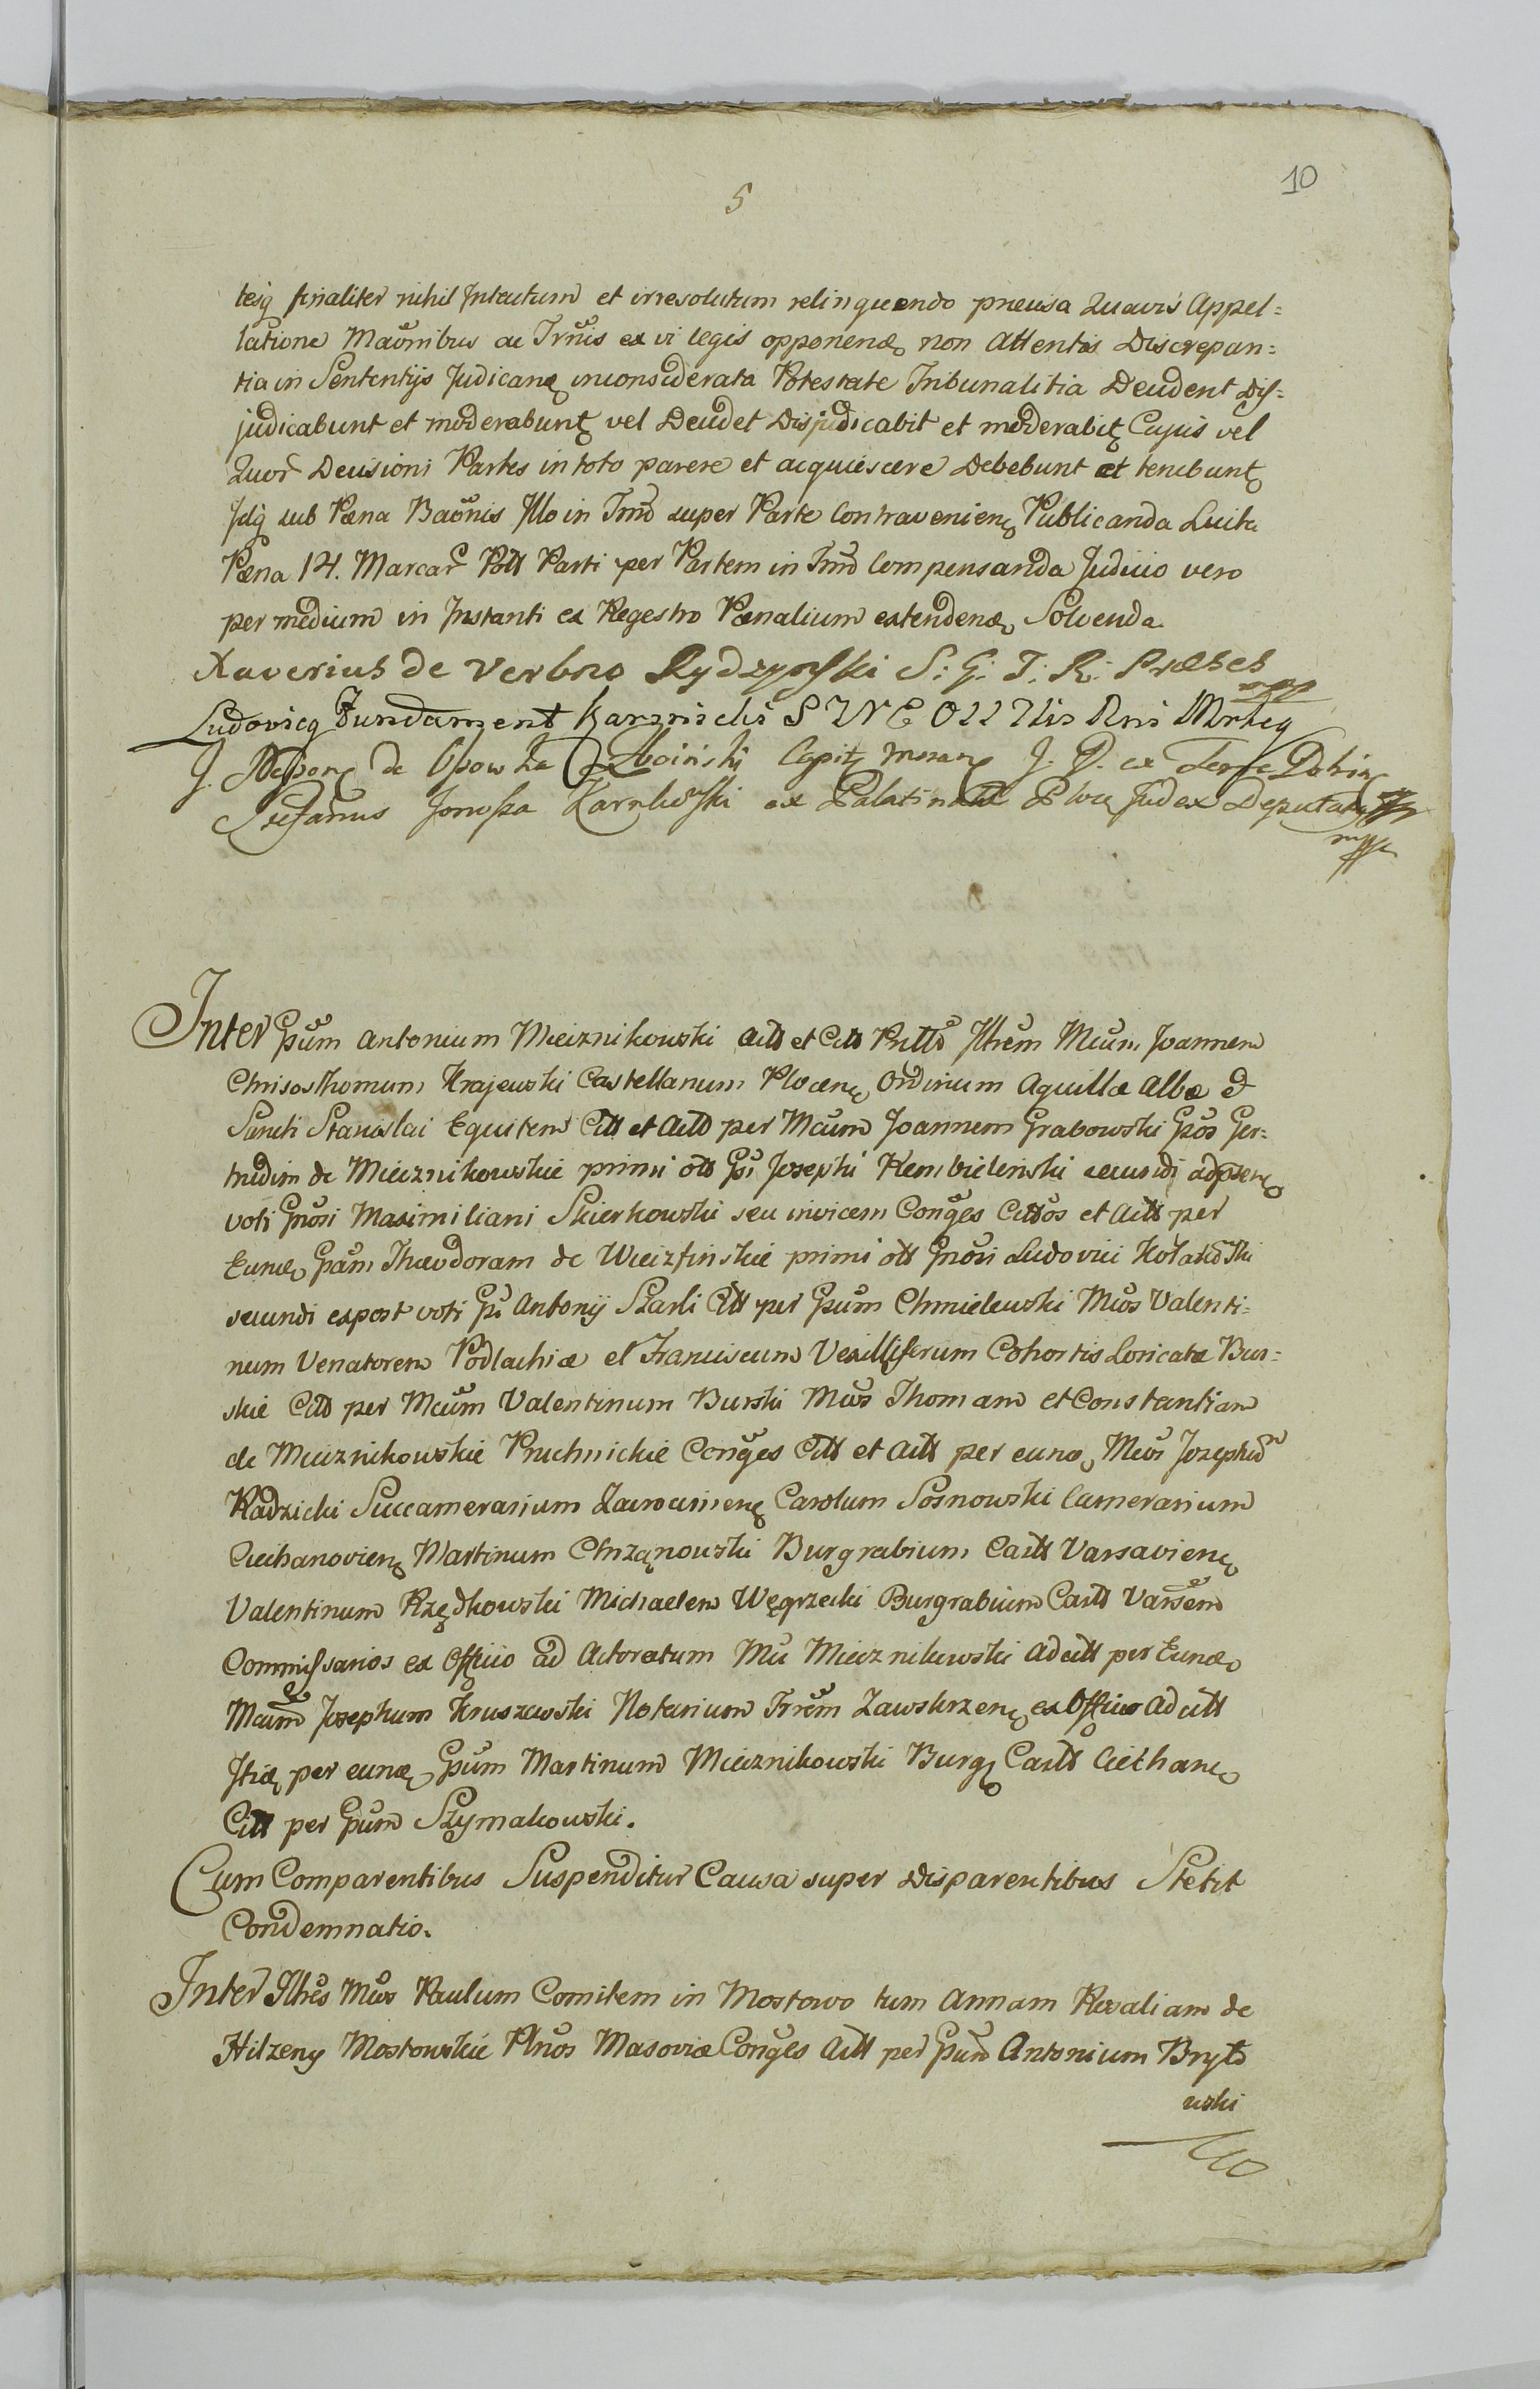 10
5
tesq finaliter nihil Intentum et irresolutum relinquendo precisa Quavis Appel=
latione Maonibus ac Trnis ex vi legis opponen non Attentis Discrepan=
tia in Sententijs Judican inconsiderata Potestate Tribunalitia Decident Dis=
judicabunt et moderabunt vel Decidet Disjudicabit et moderabit Cujus vel
Quor Decisioni Partes in toto parere et acquiescere Debebunt et tenebunt
Idq sub Pæna Baonis Illo in Tmno super Parte Contravenien Publicanda Luita
Pæna 14. Marcar Poll Parti per Partem in Tmno Compensanda Judicio vero
per medium in Instanti ex Regestro Pænalium extenden Solvenda.
Xaverius de Verbno Rydzynski S: G: T: R: Præses
mpp
Ludovicq Fundament Karznicki
J. Nepon de Ossowka Zboinski Capit J. D. ex Terre Dobrin
Stefanus Jonosza Karnkowski ex Palatinatu Ploc Judex Deputatq
mppa
Inter Gsum Antonium Miecznikowski Actt et Citt Pntto Illrem Mcum Joannem
Chrisosthomum Krajewski Castellanum Plocen Ordinum Aquillæ Albæ et
Sancti Stanislai Equitem Citt et Actt per Mcum Joannem Grabowski Gsos Ger=
trudim de Miecznikowskie primi ott Gsi Josephi Kembielinski secundi adpræsen
voti Gnosi Maximiliani Skierkowski seu invicem Conges Cittos et Actt per
Eund Gsam Theodoram de Wiczfinskie primi ott Gnosi Ludovici Kołakoski
secundi expost voti Gsi Antonij Szarli Citt per Gsum Chmielewski Mcos Valenti=
num Venatorem Podlachiæ et Franciscum Vexilliferum Cohortis Loricatæ Bur=
skie Citt per Mcum Valentinum Burski Mcos Thomam et Constantiam
de Miecznikowskie Pruchnickie Conges Citt et Actt per eund Mcos Josephum
Radzicki Succamerarium Zawcrinen Carolum Sosnowski Camerarium
Ciechanovien Martinum Chrzanowski Burgrabium Castt Varsavien
Valentinum Rzędkowski Michaelem Węgrzecki Burgrabium Castt Varsem
Commissarios ex Officio ad Actoratum Mci Miecznikowski Adcitt per Eund
Mcum Josephum Kruszewski Notarium Trrem Zawskrzen ex Officio adcitt
Itid per eund Gsum Martinum Miecznikowski Burg Castt Ciechan
Citt per Gsum Szymakowski.
Cum Comparentibus Suspenditur Causa super Disparentibus Stetit
Condemnatio.
Inter Illres Mcos Paulum Comitem in Mostowo tum Annam Rosaliam de
Hilzeny Mostowskie Plnos Masoviæ Conges Actt per Gsum Antonium Bryko
wski